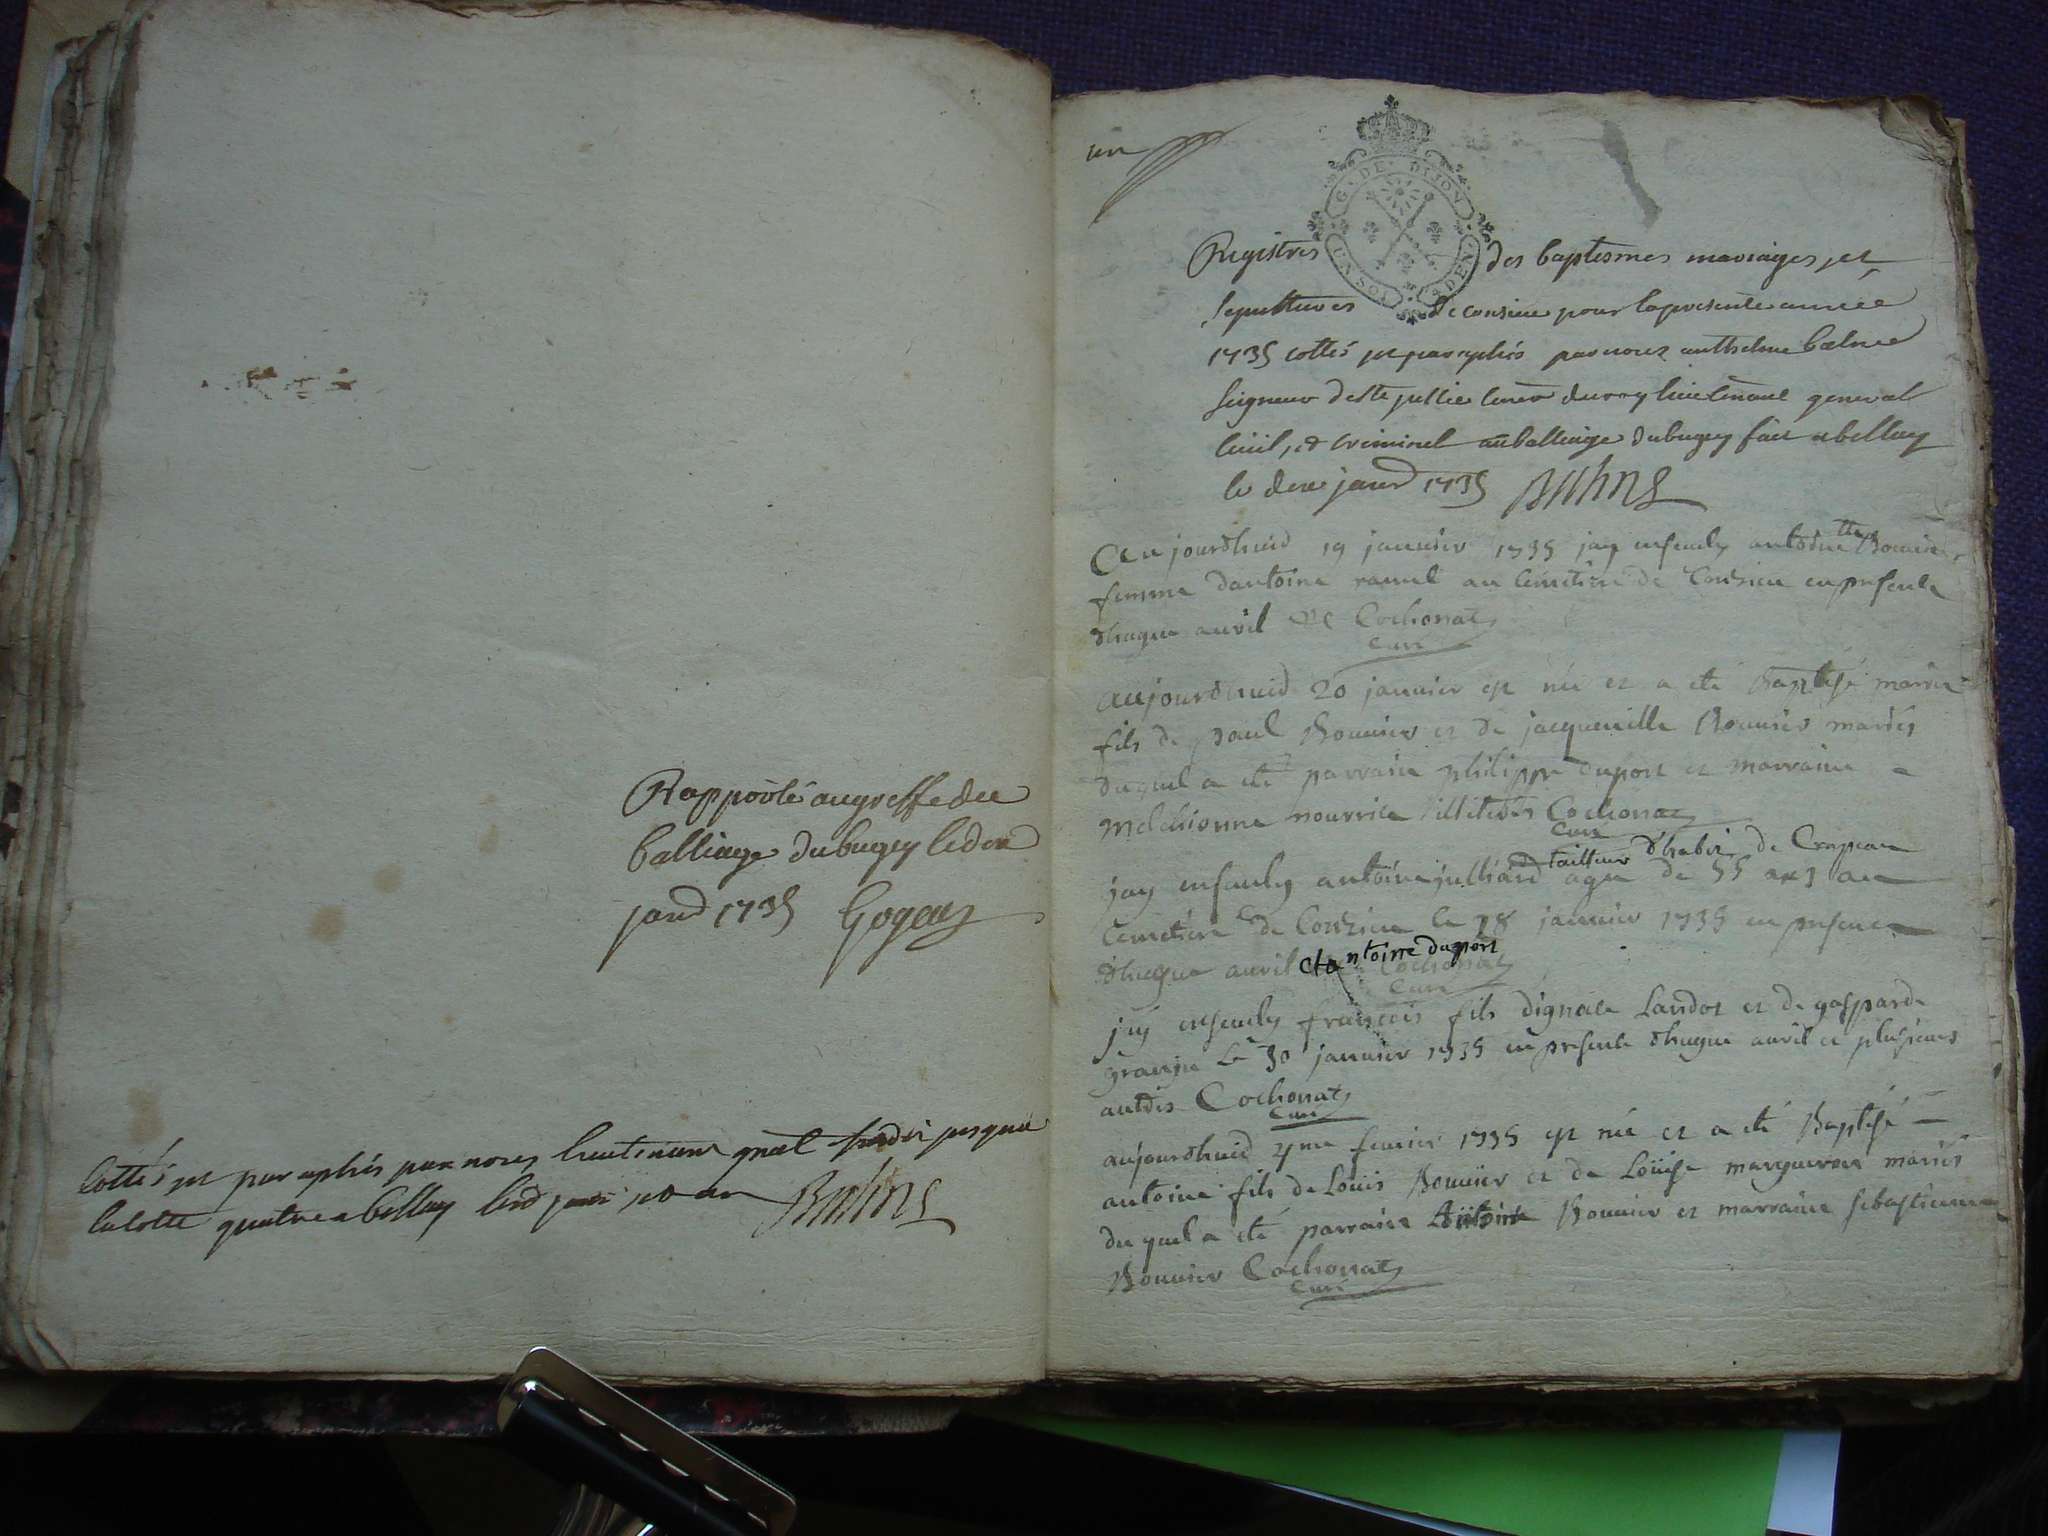 Rapporté au greffe du
balliage du bugey led
janv 1735 Gogoz
Cottés et paraphés par nous lieutenant gnal jusqua
la cotte quatre a belley led jour et an
un
G. DE DIJON
UN SOL DEN
Registres des baptesmes mariages et
sepultures de consieu pour la presente année
1735 cottés et paraphés par nous anthelme balme
seigneur de Ste jullie coner du roy lieutenant general
civil, et criminel au balliage du bugey fait a belley
le janv 1735
Aujourdhuid 19 janvier 1735 jay enseuely antoinette
femme dantoine ramel au cemetiere de Conzieu en presence
dhugue auril Cochonat
Curé
aujourdhuid 20 janvier est né et a été Baptisé
fils de paul Bouuier et de jacquemille Bouuier mariés
duquel a été parrain philippe duport et marraine
melchionne nourrice illiterés Cochonat
Curé
tailleur dhabit de Crapeau
jay enseuely antoine julliard agé de 55 ans au
cemetiere de Conzieu le 28 janvier 1735 en presence
dhugue auril et antoine duport Cochonat
Curé
jay enseuely francois fils dignace Landot et de gasparde
grange Le 30 janvier 1735 en presence dhugue auril et plusieurs
autres Cochonat
Curé
aujourdhuid feurier 1735 est né et a été Baptisé
antoine fils de Loüis Bouuier et de Loüise margueron mariés
du quel a été parrain Antoine Bouuier et marraine sebastienne
Bouuier Cochonat
Curé